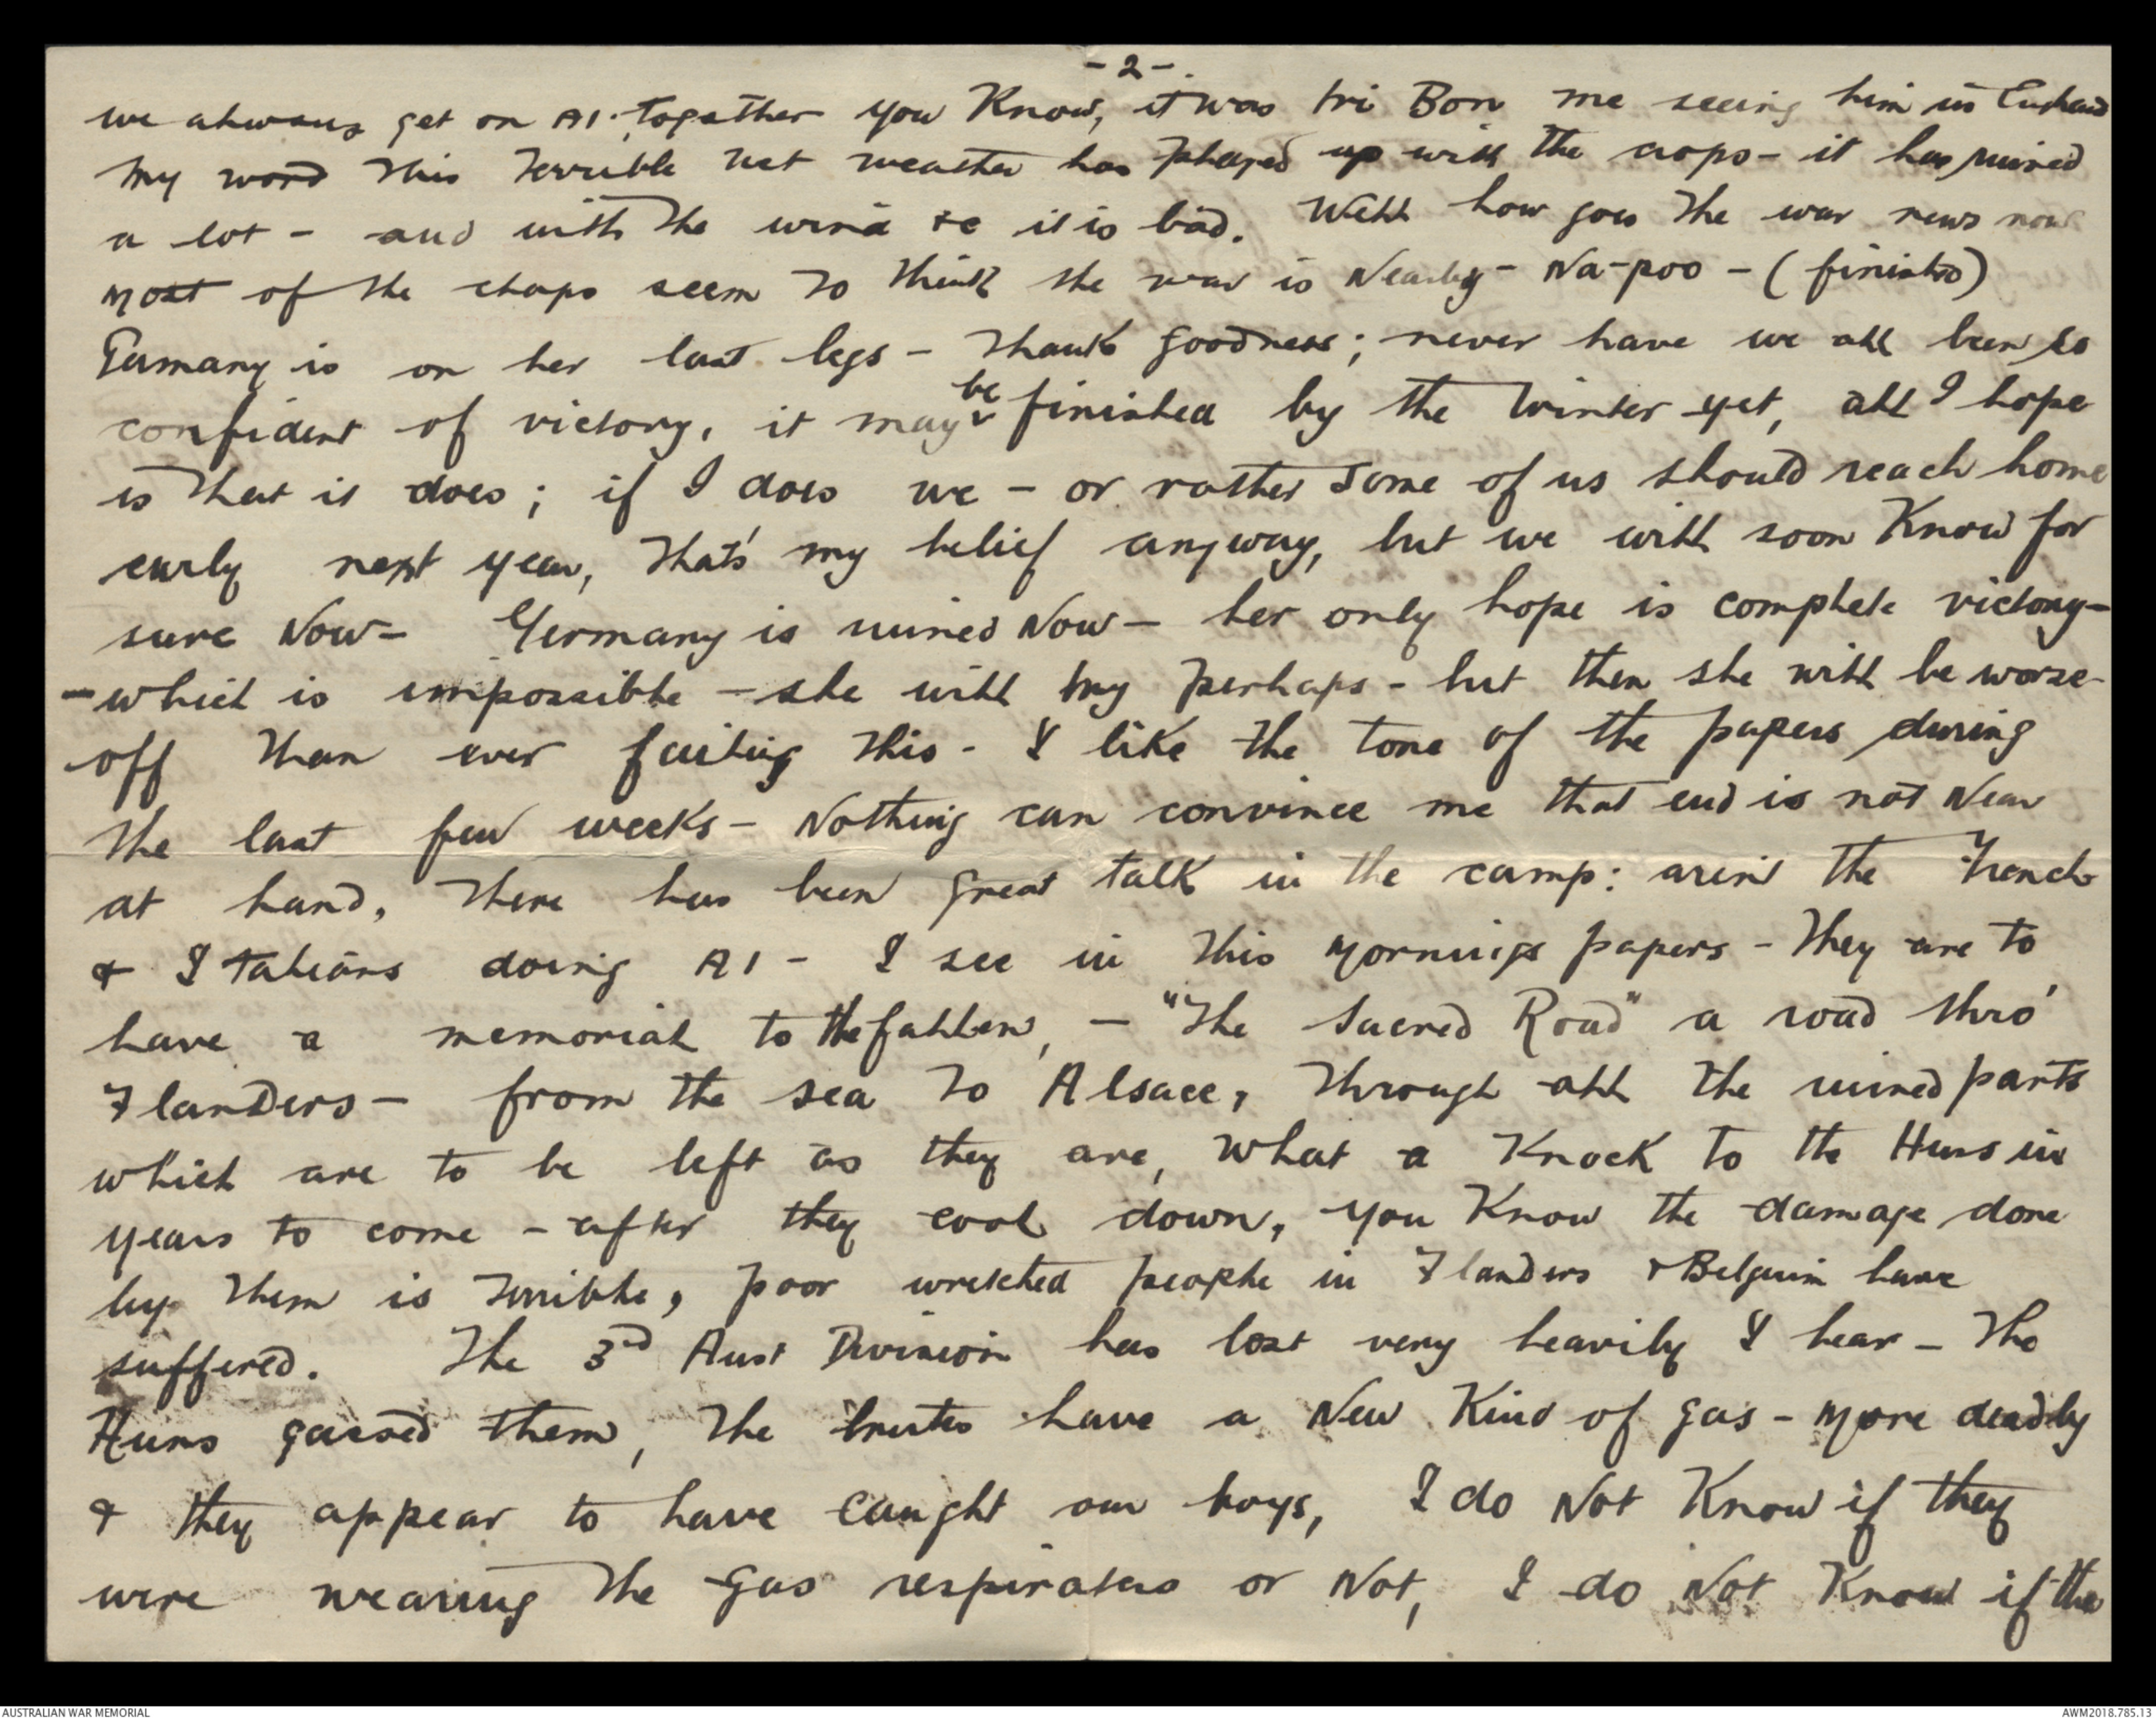 -2-.
we always get on A1. together you Know, it was tri Bon me seeing him in England
my word this terrible wet weather has played up with the crops - it has ruined
a lot - and with the wind &c it is bad. Well how goes the war news now
most of the chaps seem to think the war is Nearly - Na-poo - (finished)
Germany is on her last legs - thank goodness; never have we all been so
confident of victory, it may be finished by the Winter yet, all I hope
is that it does; if I does we - or rather some of us should reach home
early next year, that's my belief anyway, but we will soon Know for
sure Now - Germany is ruined Now - her only hope is complete victory -
- which is impossible - she will try perhaps - but then she will be worse
off than ever failing this - I like the tone of the papers during
the last few weeks - Nothing can convince me that end is not Near
at hand, there has been great talk in the camp: aren't the French
& Italians doing A1 - I see in this mornings papers - they are to
have a memorial to the fallen, - "The Sacred Road" a road thro'
Flanders - from the sea to Alsace, through all the ruined parts
which are to be left as they are, what a Knock to the Huns in
years to come - after they cool down, you Know the damage done
by them is terrible, poor wretched people in Flanders & Belguim have
suffered. The 3rd Aust Division has lost very heavily I hear - The
Huns gassed them, the brutes have a New Kind of gas - more deadly
& they appear to have caught our boys, I do Not Know if they
were wearing the gas respirators or Not, I do Not Know if the
AUSTRALIAN WAR MEMORIAL
AWM2018.785.13